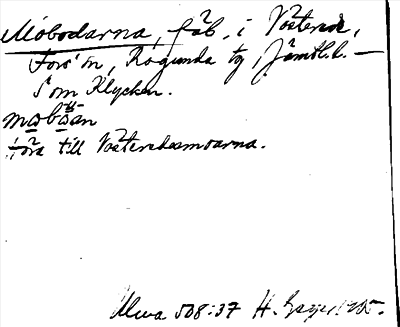 Mobodarna, fäb. i Västerede,
Fors sn, Ragunda tg Jämtl. l. —
Som Klycken.
höra till Västeredesmoarna.
Ulma 508:37 H. Geijer 1905.